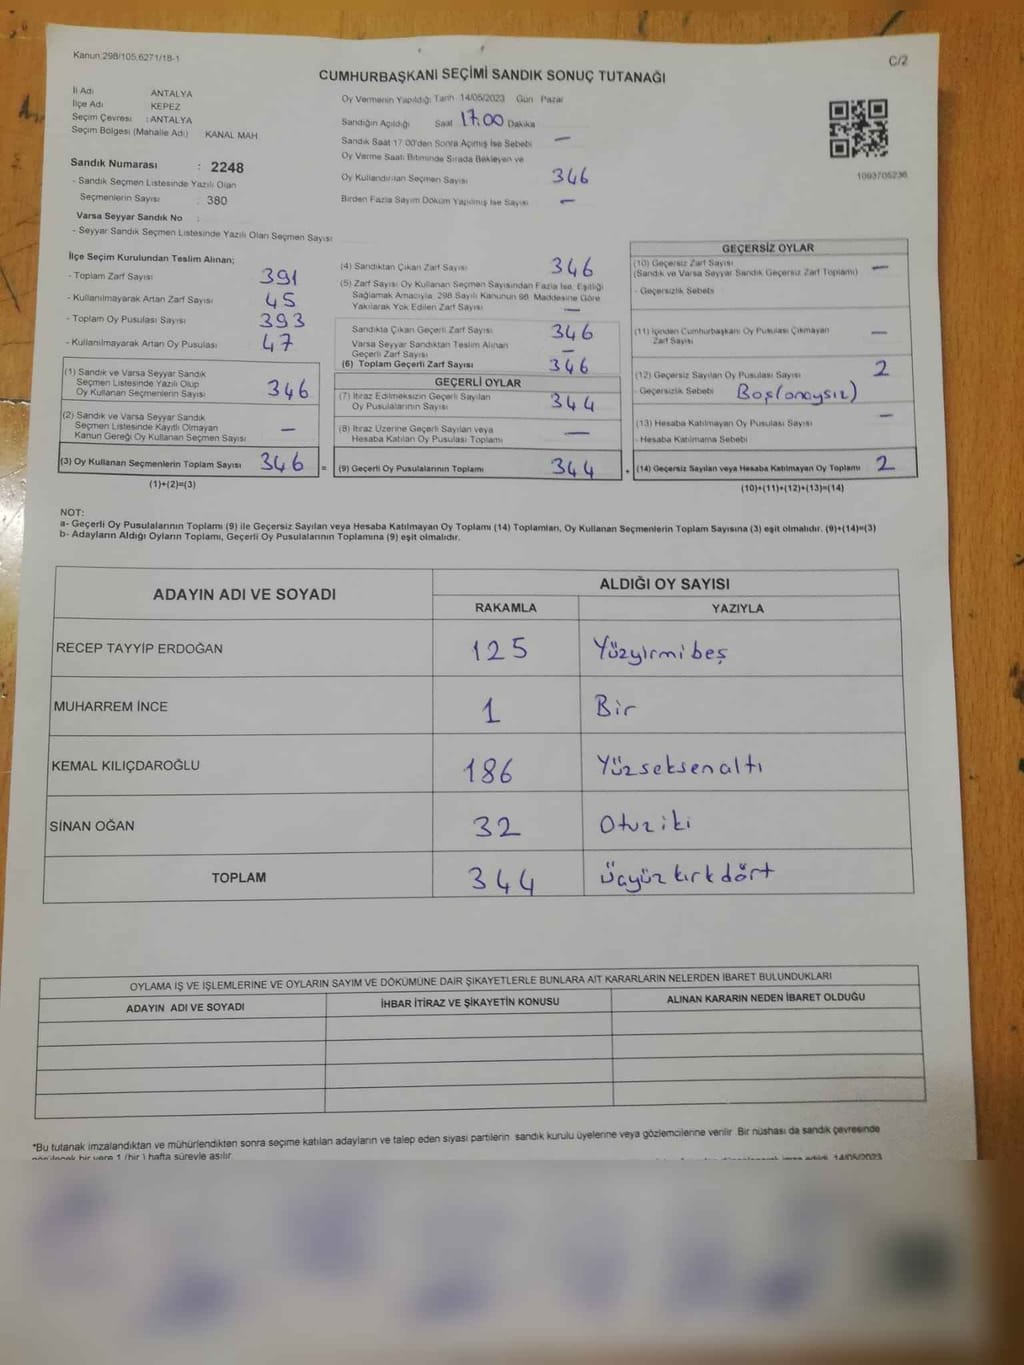 Kanun:298/105,6271/18-1
C/2
CUMHURBAŞKANI SEÇİMİ SANDIK SONUÇ TUTANAĞI
İl Adı ANTALYA
İlçe Adı KEPEZ
Seçim Çevresi : ANTALYA
Seçim Bölgesi (Mahalle Adı) KANAL MAH.
Sandık Numarası : 2248
- Sandık Seçmen Listesinde Yazılı Olan
Seçmenlerin Sayısı : 380
Varsa Seyyar Sandık No :
- Seyyar Sandık Seçmen Listesinde Yazılı Olan Seçmen Sayısı :
Oy Vermenin Yapıldığı Tarih 14/05/2023 Gün Pazar
Sandığın Açıldığı Saat 17.00 Dakika
Sandık Saat 17:00'den Sonra Açımış İse Sebebi —
Oy Verme Saati Bitiminde Sırada Bekleyen ve
Oy Kullandırılan Seçmen Sayısı 346
Birden Fazla Sayım Döküm Yapılmış İse Sayısı —
1093705236
İlçe Seçim Kurulundan Teslim Alınan;
- Toplam Zarf Sayısı 391
- Kullanılmayarak Artan Zarf Sayısı 45
- Toplam Oy Pusulası Sayısı 393
- Kullanılmayarak Artan Oy Pusulası 47
(1) Sandık ve Varsa Seyyar Sandık
Seçmen Listesinde Yazılı Olup
Oy Kullanan Seçmenlerin Sayısı 346
(2) Sandık ve Varsa Seyyar Sandık
Seçmen Listesinde Kayıtlı Olmayan
Kanun Gereği Oy Kullanan Seçmen Sayısı —
(3) Oy Kullanan Seçmenlerin Toplam Sayısı 346 =
(1)+(2)=(3)
(4) Sandıktan Çıkan Zarf Sayısı 346
(5) Zarf Sayısı Oy Kullanan Seçmen Sayısından Fazla İse, Eşitliği
Sağlamak Amacıyla, 298 Sayılı Kanunun 98. Maddesine Göre
Yakılarak Yok Edilen Zarf Sayısı —
Sandıkta Çıkan Geçerli Zarf Sayısı 346
Varsa Seyyar Sandıktan Teslim Alınan
Geçerli Zarf Sayısı —
(6) Toplam Geçerli Zarf Sayısı 346
GEÇERLİ OYLAR
(7) İtiraz Edilmeksizin Geçerli Sayılan
Oy Pusulalarının Sayısı 344
(8) İtiraz Üzerine Geçerli Sayılan veya
Hesaba Katılan Oy Pusulası Toplamı —
(9) Geçerli Oy Pusulalarının Toplamı 344 +
GEÇERSİZ OYLAR
(10) Geçersiz Zarf Sayısı —
(Sandık ve Varsa Seyyar Sandık Geçersiz Zarf Toplamı)
- Geçersizlik Sebebi
(11) İçinden Cumhurbaşkanı Oy Pusulası Çıkmayan —
Zarf Sayısı
(12) Geçersiz Sayılan Oy Pusulası Sayısı 2
- Geçersizlik Sebebi Boş(onaysız)
(13) Hesaba Katılmayan Oy Pusulası Sayısı —
- Hesaba Katılmama Sebebi
(14) Geçersiz Sayılan veya Hesaba Katılmayan Oy Toplamı 2
(10)+(11)+(12)+(13)=(14)
NOT:
a- Geçerli Oy Pusulalarının Toplamı (9) ile Geçersiz Sayılan veya Hesaba Katılmayan Oy Toplamı (14) Toplamları, Oy Kullanan Seçmenlerin Toplam Sayısına (3) eşit olmalıdır. (9)+(14)=(3)
b- Adayların Aldığı Oyların Toplamı, Geçerli Oy Pusulalarının Toplamına (9) eşit olmalıdır.
ADAYIN ADI VE SOYADI
ALDIĞI OY SAYISI
RAKAMLA YAZIYLA
RECEP TAYYİP ERDOĞAN 125 Yüzyirmi beş
MUHARREM İNCE 1 Bir
KEMAL KILIÇDAROĞLU 186 Yüzseksenaltı
SİNAN OĞAN 32 Otuziki
TOPLAM 344 Üçyüz kırk dört
OYLAMA İŞ VE İŞLEMLERİNE VE OYLARIN SAYIM VE DÖKÜMÜNE DAİR ŞİKAYETLERLE BUNLARA AİT KARARLARIN NELERDEN İBARET BULUNDUKLARI
ADAYIN ADI VE SOYADI İHBAR İTİRAZ VE ŞİKAYETİN KONUSU ALINAN KARARIN NEDEN İBARET OLDUĞU
*Bu tutanak imzalandıktan ve mühürlendikten sonra seçime katılan adayların ve talep eden siyasi partilerin sandık kurulu üyelerine veya gözlemcilerine verilir. Bir nüshası da sandık çevresinde
bir yere 1 (bir) hafta süreyle asılır. imza edildi. 14/05/2023